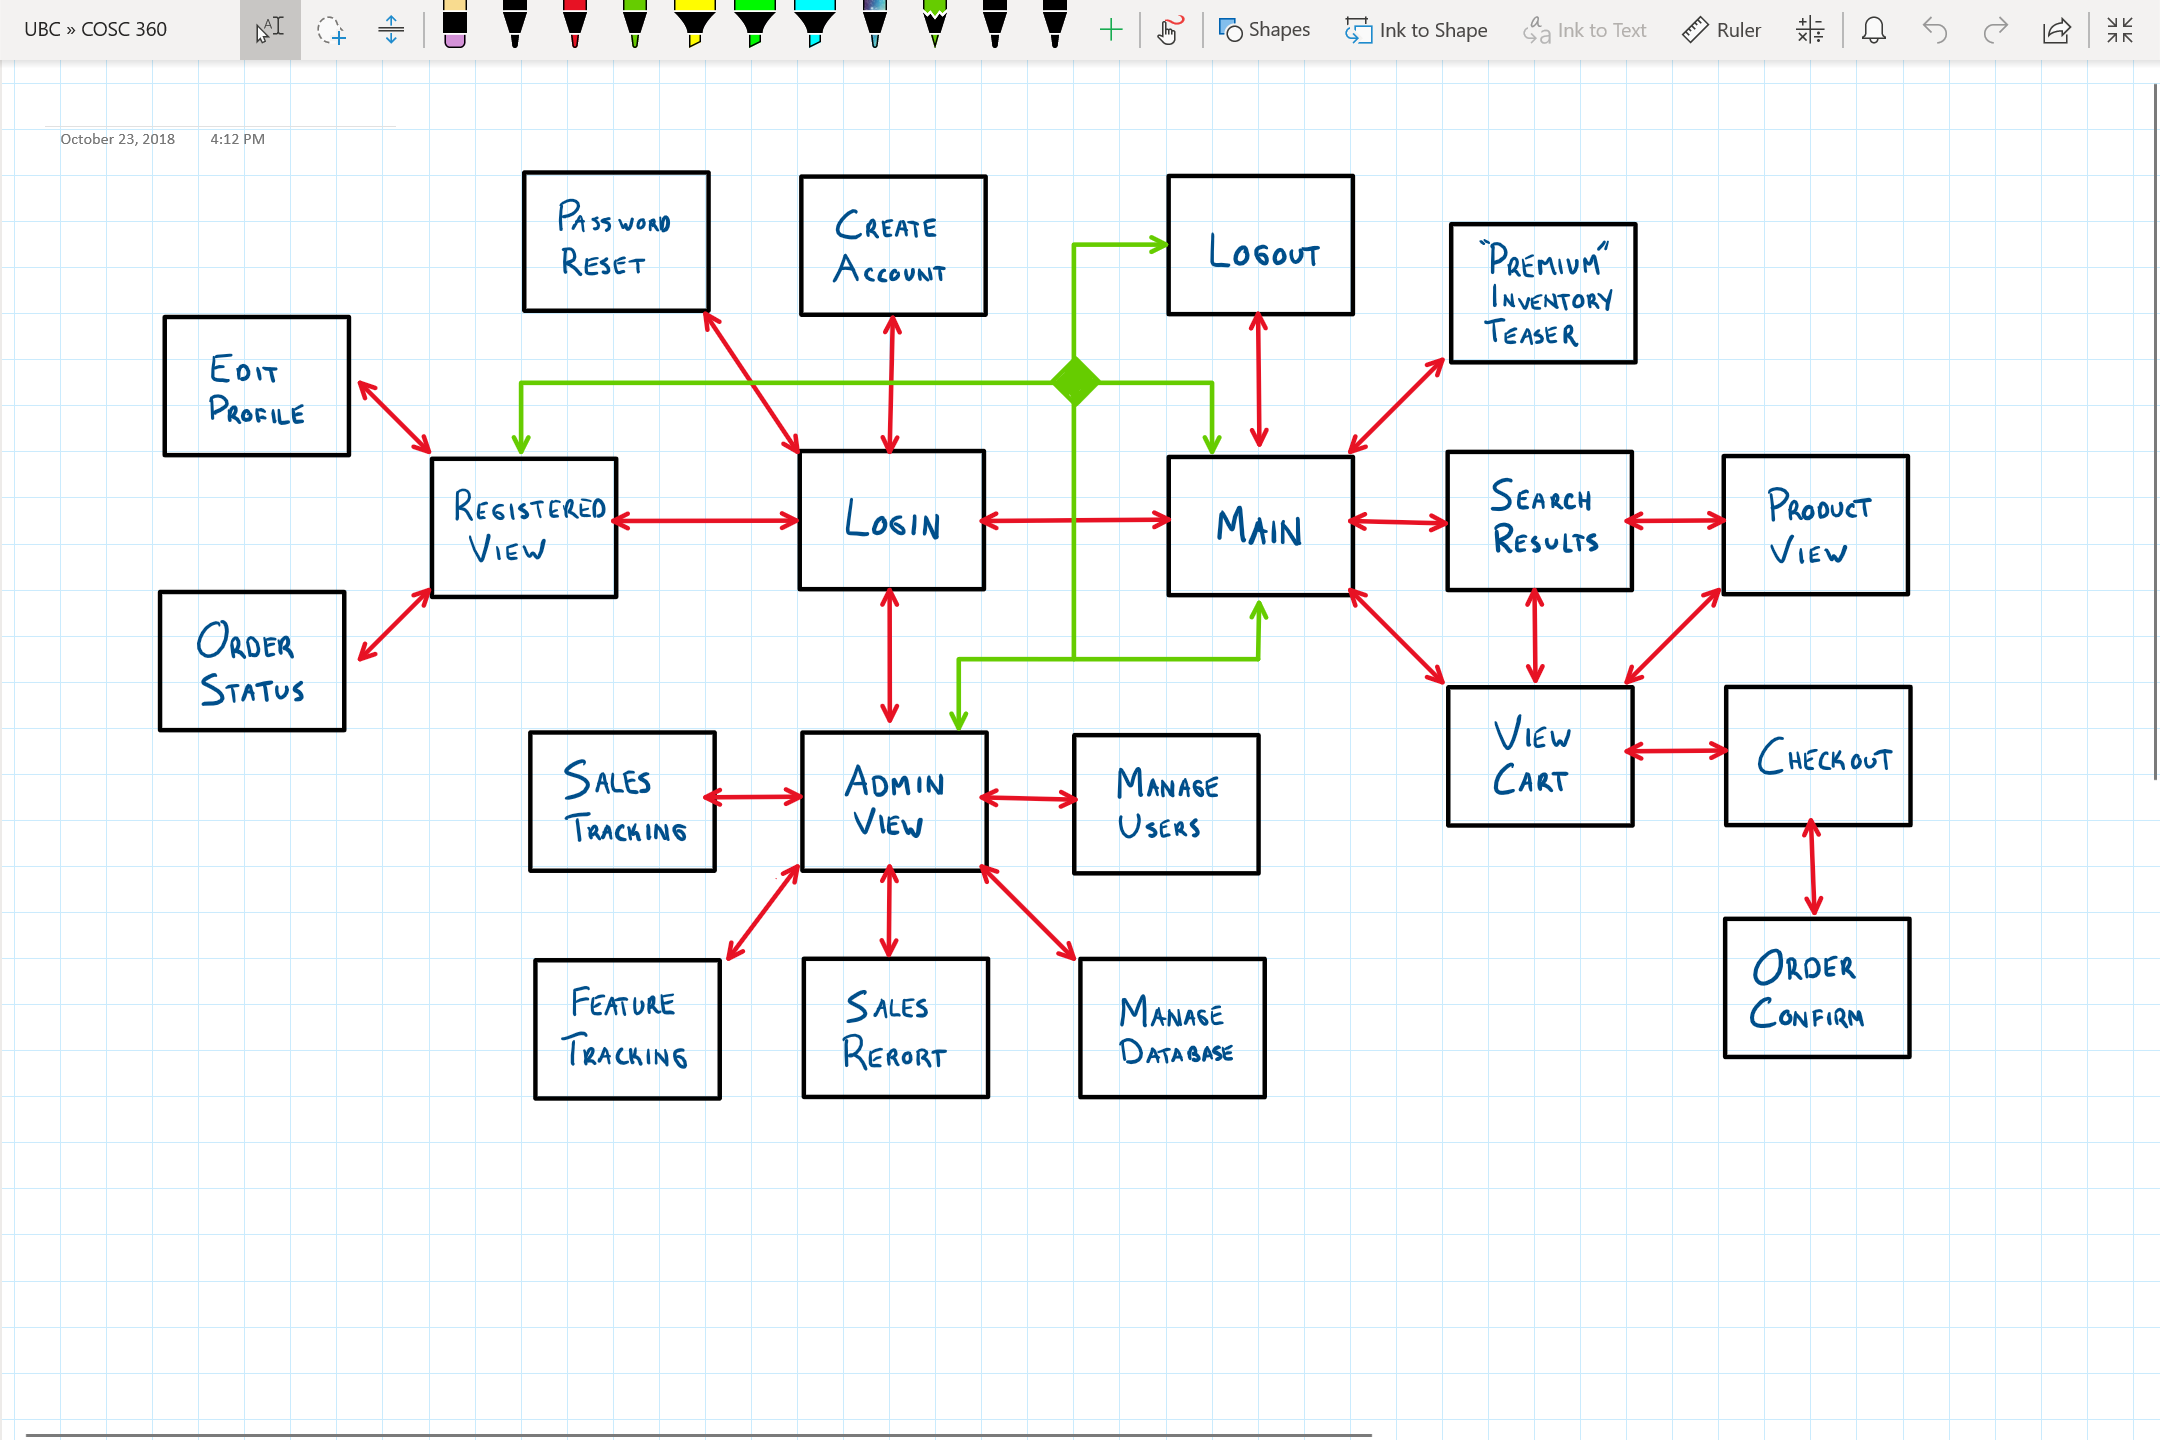 UBC » COSC 360
Shapes
Ink to Shape
Ink to Text
Ruler
October 23, 2018 4:12 PM
PASSWORD
RESET
CREATE
ACCOUNT
LOGOUT
"PREMIUM"
INVENTORY
TEASER
EDIT
PROFILE
REGISTERED
VIEW
LOGIN
MAIN
SEARCH
RESULTS
PRODUCT
VIEW
ORDER
STATUS
SALES
TRACKING
ADMIN
VIEW
MANAGE
USERS
VIEW
CART
CHECKOUT
FEATURE
TRACKING
SALES
REPORT
MANAGE
DATABASE
ORDER
CONFIRM